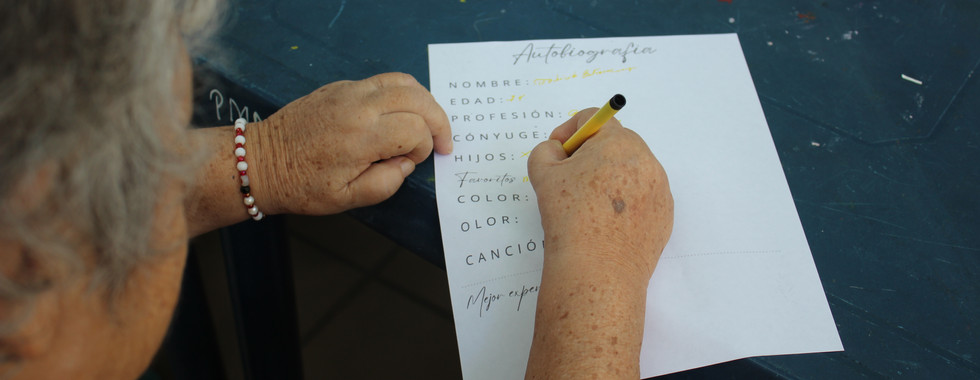 Autobiografía
NOMBRE:
EDAD:
PROFESIÓN:
CÓNYUGE:
HIJOS:
Favoritos
COLOR:
OLOR:
CANCIÓ
Mejor exper